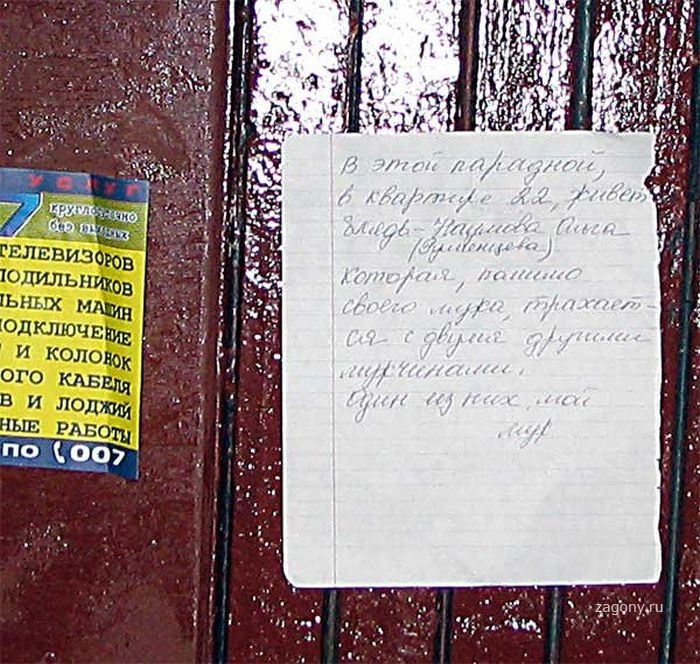 УСЛУГ
7
круглосуточно
без выходных
ТЕЛЕВИЗОРОВ
ЛОДИЛЬНИКОВ
ЛЬНЫХ МАШИН
ПОДКЛЮЧЕНИЕ
И КОЛОНОК
ОГО КАБЕЛЯ
В И ЛОДЖИЙ
НЫЕ РАБОТЫ
ПО 007
В этой парадной,
в квартире 22, живет
блядь - Наумова Ольга
(Румянцева)
которая, помимо
своего мужа, трахает-
ся с двумя другими
мужчинами.
Один из них, мой
муж
zagony.ru